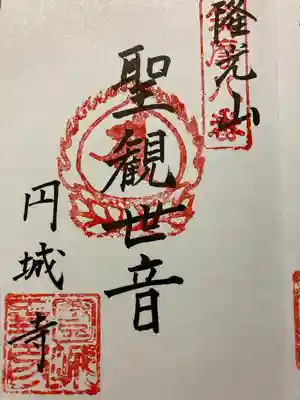 隆光山
聖観世音
円城寺